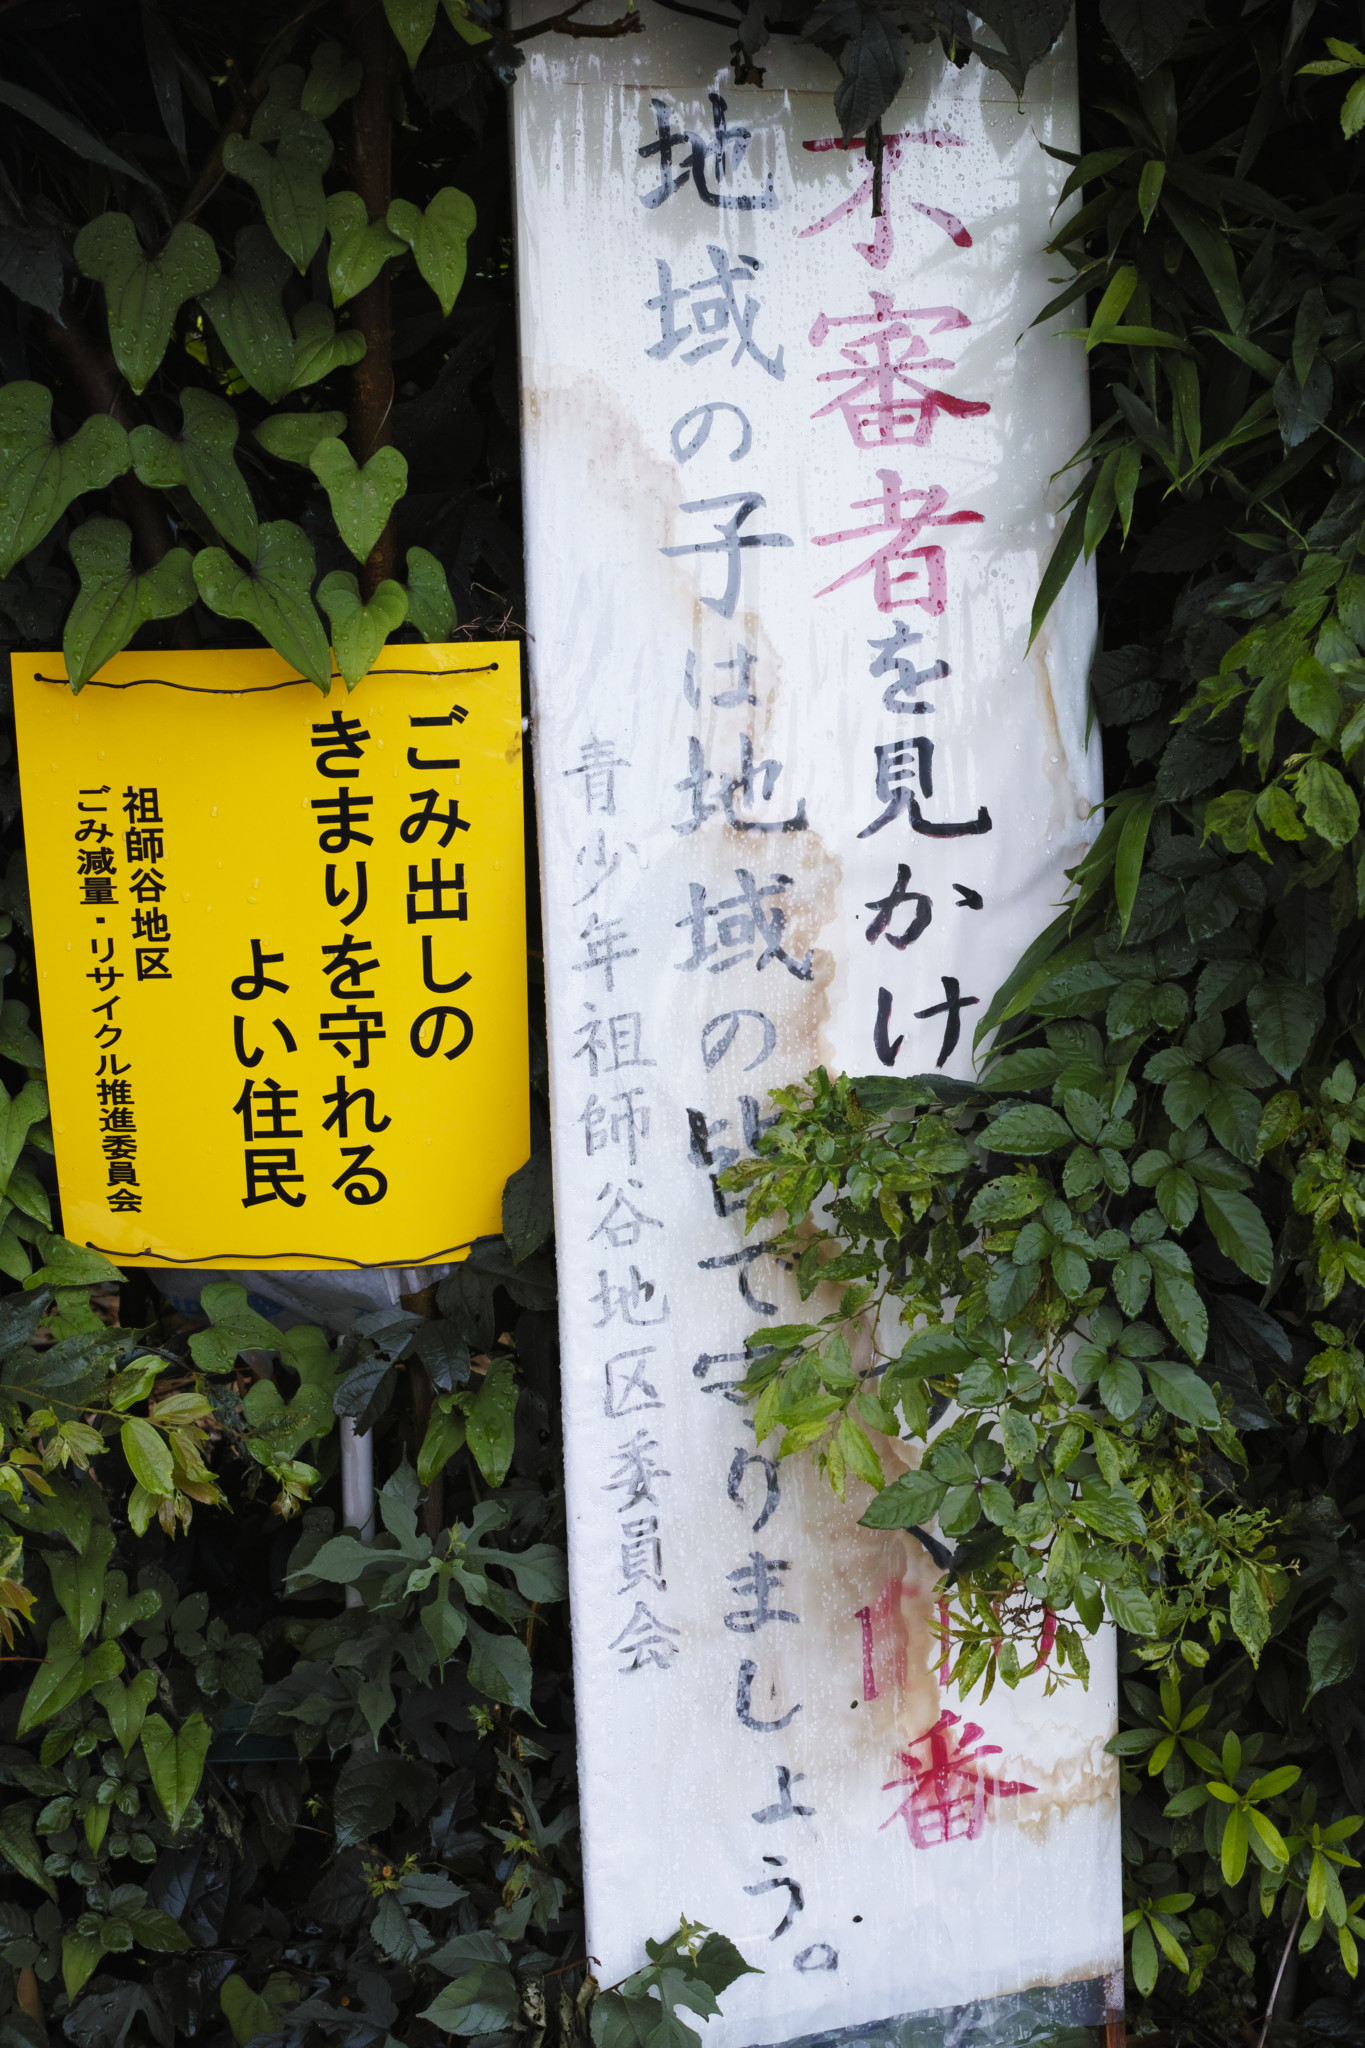 不審者を見かけ
110番
地域の子は地域の皆で守りましょう。
青少年祖師谷地区委員会
ごみ出しの
きまりを守れる
よい住民
祖師谷地区
ごみ減量・リサイクル推進委員会